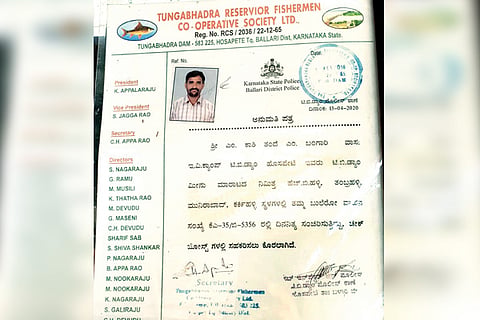 TUNGABHADRA RESERVIOR FISHERMEN
CO-OPERATIVE SOCIETY LTD.,
Reg. No. RCS / 2036 / 22-12-65
TUNGABHADRA DAM - 583 225, HOSAPETE Tq, BALLARI Dist, KARNATAKA State.
Ref. No.
Date:
President
K. APPALARAJU
Vice-President
S. JAGGA RAO
Secretary
C.H. APPA RAO
Directors
S. NAGARAJU
G. RAMU
M. MUSILI
K. THATHA RAO
M. DEVUDU
G. MASENI
C.H. DEVUDU
SHARIF SAB
S. SHIVA SHANKAR
P. NAGARAJU
B. APPA RAO
M. NOOKARAJU
M. NOOKARAJU
K. NAGARAJU
S. GALIRAJU
Karnataka State Police
Ballari District Police
ದಿನಾಂಕ:13-04-2020
ಅನುಮತಿ ಪತ್ರ
ಶ್ರೀ ಎಂ. ಕಾಶಿ ತಂದೆ ಎಂ. ಬಂಗಾರಿ ವಾಸ:
ಇ.ವಿ.ಕ್ಯಾಂಪ್ ಟಿ.ಬಿ.ಡ್ಯಾಂ ಹೊಸಪೇಟೆ ಇವರು ಟಿ.ಬಿ.ಡ್ಯಾಂ
ಮೀನು ಮಾರಾಟದ ನಿಮಿತ್ತ ಹೆಚ್.ಬಿ.ಹಳ್ಳಿ, ತಂಬ್ರಹಳ್ಳಿ,
ಮುನಿರಾಬಾದ್, ಕರ್ಕಿಹಳ್ಳಿ ಸ್ಥಳಗಳಲ್ಲಿ ತಮ್ಮ ಬುಲೆರೋ ವಾಹನ
ಸಂಖ್ಯೆ ಕೆಎ-35/ಬಿ-5356 ರಲ್ಲಿ ದಿನನಿತ್ಯ ಸಂಚರಿಸುತ್ತಿದ್ದು, ಚೆಕ್
ಪೋಸ್ಟ್ ಗಳಲ್ಲಿ ಸಹಕರಿಸಲು ಕೋರಲಾಗಿದೆ.
Secretary